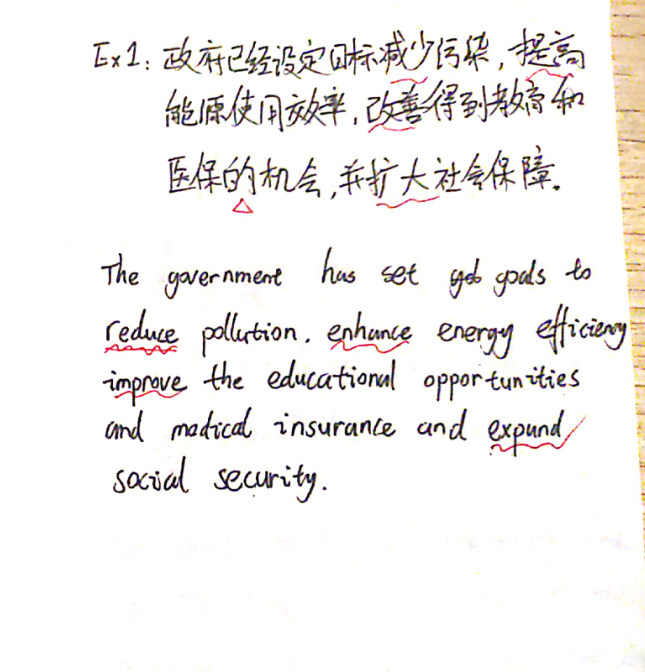 Ex1: 政府已经设定目标减少污染,提高
能源使用效率,改善得到教育和
医保的机会,并扩大社会保障.
The government has set goals to
reduce pollution. enhance energy efficiency
improve the educational opportunities
and madical insurance and expand
social security.